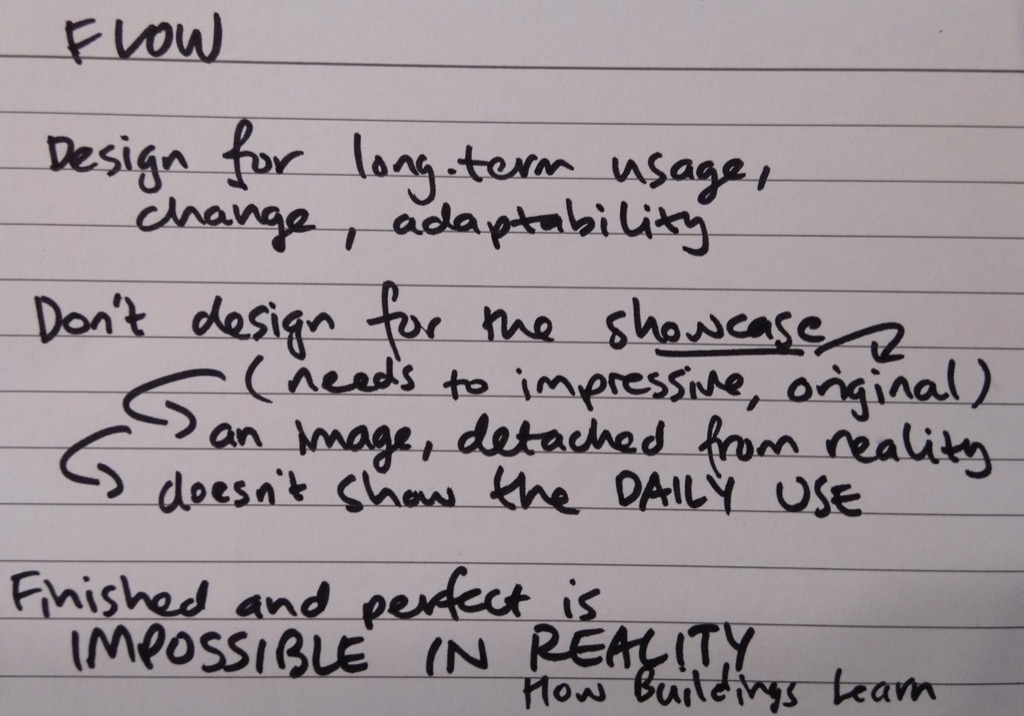 FLOW
Design for long-term usage,
change, adaptability
Don't design for the showcase
(needs to impressive, original)
an image, detached from reality
doesn't show the DAILY USE
Finished and perfect is
IMPOSSIBLE IN REALITY
How Buildings Learn